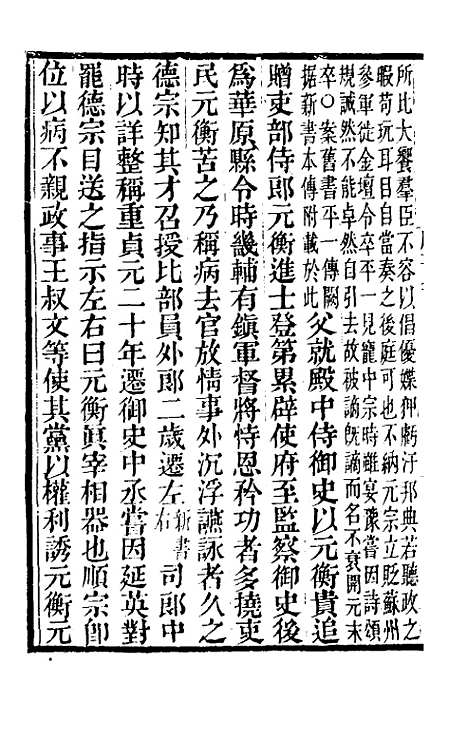 所比大饗羣臣不容以倡優媟狎虧汙邦典若聽政之
暇苟玩耳目自當奏之後庭可也不納元宗立貶蘇州
參軍徙金壇令卒平一見寵中宗時雖宴豫嘗因詩頌
規誡然不能卓然自引去故被謫既謫而名不衰開元末
卒○案舊書平一傳闕
據新書本傳附載於此父就殿中侍御史以元衡貴追
贈吏部侍郎元衡進士登第累辟使府至監察御史後
爲華原縣令時畿輔有鎭軍督將恃恩矜功者多撓吏
民元衡苦之乃稱病去官放情事外沉浮讌詠者久之
德宗知其才召授比部員外郎二歲遷左新書右司郎中
時以詳整稱重貞元二十年遷御史中丞嘗因延英對
罷德宗目送之指示左右曰元衡眞宰相器也順宗即
位以病不親政事王叔文等使其黨以權利誘元衡元